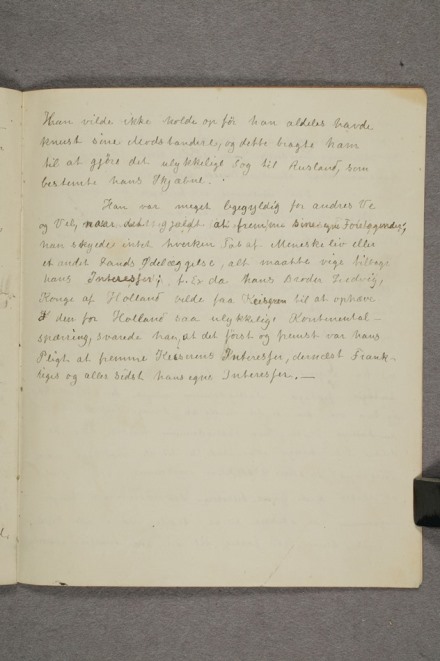 Han vilde ikke holde op før han aldeles havde
knust sine Modstandere, og dette bragte ham
til at gjöre det ulykkelige Tog til Rusland, som
bestemte hans Skjæbne.
Han var meget ligegyldig for andres Ve
og Vel, naar det gjældt at fremme sine egne
han skyede intet hverken Tab af Menneskeliv eller
et andet Lands Ödelæggelse, alt maatte vige tilbage
hans Interesser; f. Ex da hans Broder Ludvig,
Konge af Holland vilde faa Keiseren til at ophæve
den for Holland saa ulykkelige Kontinental-
spærring, svarede han, at det först og fremst var hans
Pligt at fremme Keiserens Interesser, dernæst Frank-
riges og aller sidst hans egne Interesser. —